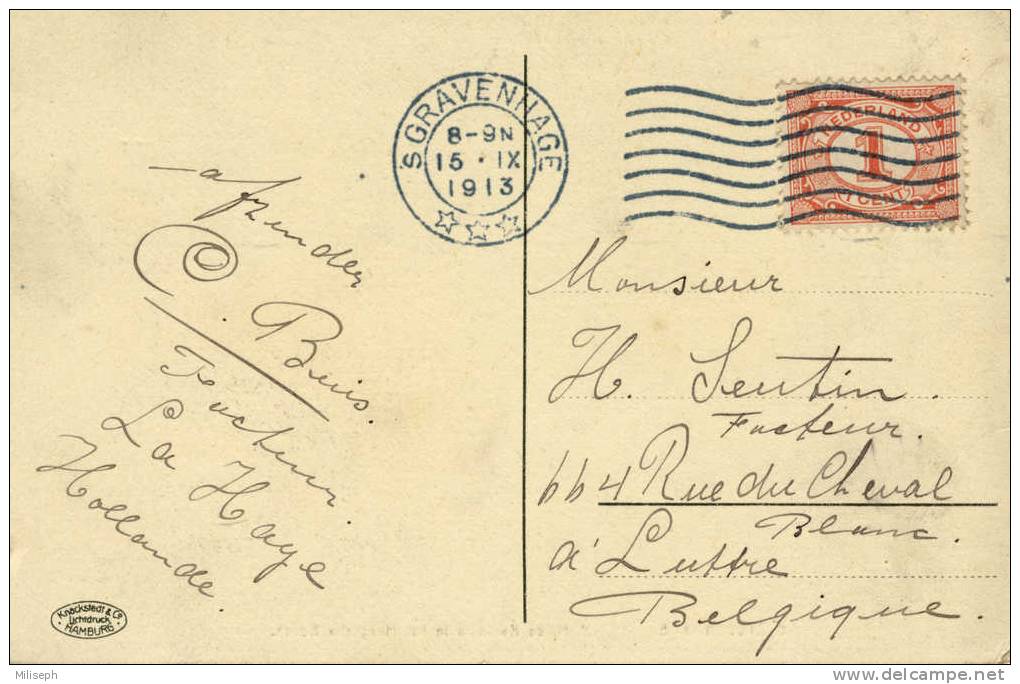 S GRAVENHAGE
8-9N
15 · IX
1913
NEDERLAND
1
1 CENT
afzender
C. Buis.
Facteur.
La Haye
Hollande.
Monsieur
H. Sentin.
Facteur.
664 Rue du Cheval
Blanc.
à Luttre
Belgique.
Knackstedt & Co.
Lichtdruck
HAMBURG
Miliseph
delcampe.net